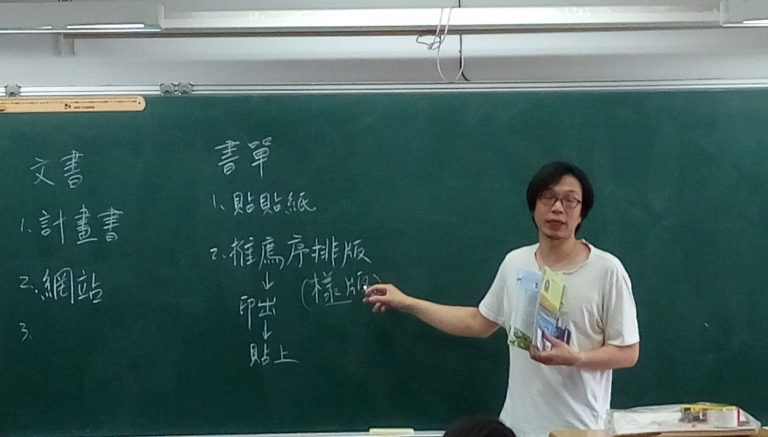 文書
1. 計畫書
2. 網站
3.
書單
1. 貼貼紙
2. 推薦序排版
↓ (樣版)
印出
↓
貼上